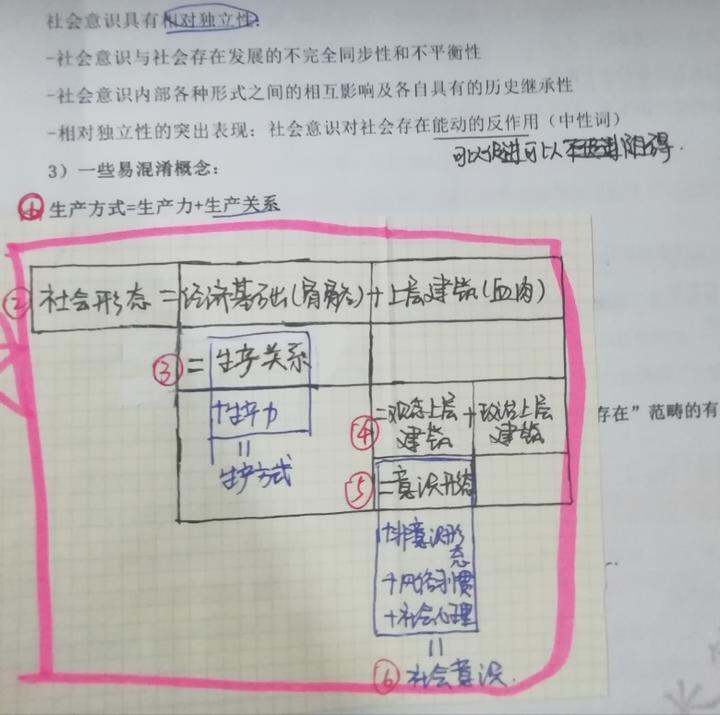 社会意识具有相对独立性:
-社会意识与社会存在发展的不完全同步性和不平衡性
-社会意识内部各种形式之间的相互影响及各自具有的历史继承性
-相对独立性的突出表现：社会意识对社会存在能动的反作用（中性词）
可以促进可以阻碍.
3）一些易混淆概念:
① 生产方式=生产力+生产关系
② 社会形态 = 经济基础(骨骼) + 上层建筑(血肉)
③ = 生产关系
+生产力
=
生产方式
④ =观念上层建筑 + 政治上层建筑
存在”范畴的有
⑤ =意识形态
+非意识形态
+风俗习惯
+社会心理
=
⑥ 社会意识.